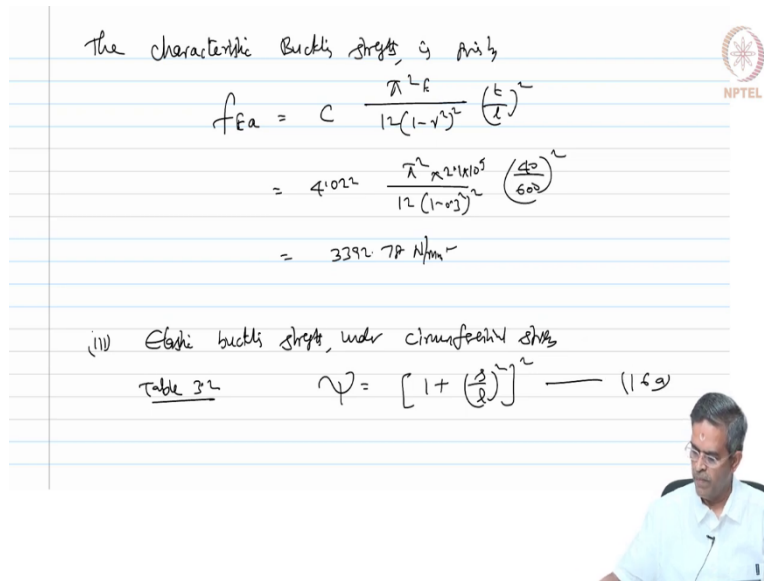 The characteristic Buckling strength, is given by
NPTEL
fEa = C π²E / 12(1-ν²)² (t/l)²
= 4.022 π² x 2.1x10⁵ / 12 (1-0.3²)² (40/600)²
= 3392.78 N/mm²
(iii) Elastic buckling strength, under circumferential stress
Table 3.2 ψ = [1 + (s/l)²]² —— (16a)